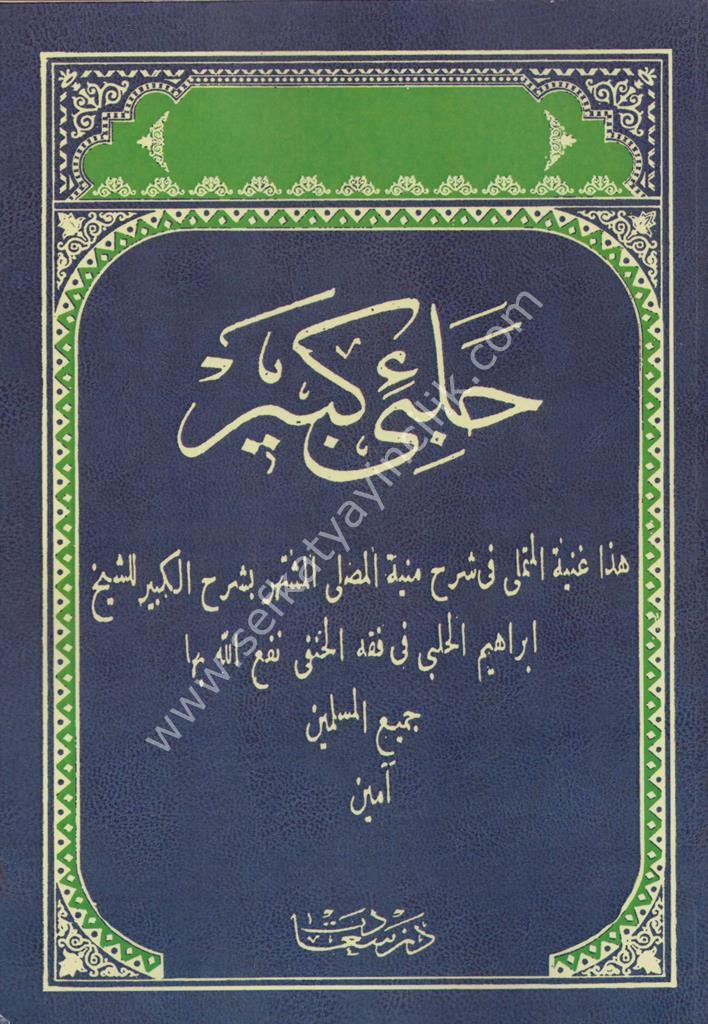 حلبئ كبير
هذا غنية المتملى فى شرح منية المصلى المشتهر بشرح الكبير للشيخ
ابراهيم الحلبي فى فقه الحنفى نفع الله بها
جميع المسلمين
آمين
در سعادت
www.serkatyayincilik.com